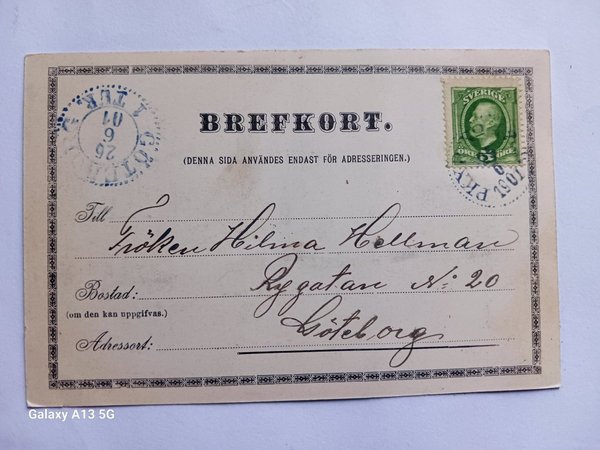 BREFKORT.
(DENNA SIDA ANVÄNDES ENDAST FÖR ADRESSERINGEN.)
SVERIGE
5
Till Fröken Hilma Hellman
Bostad: Nygatan No: 20
(om den kan uppgifvas.)
Göteborg
Adressort:
26
6
01
1 TUR
Galaxy A13 5G